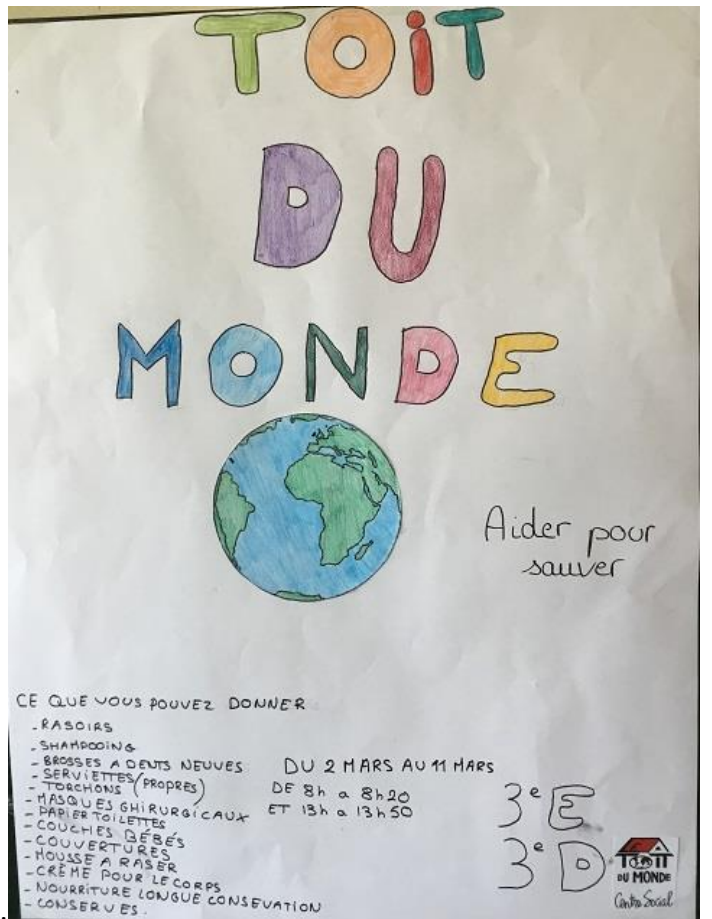 TOiT
DU
MONDE
Aider pour
sauver
CE QUE VOUS POUVEZ DONNER
- RASOIRS
- SHAMPOOING
- BROSSES A DENTS NEUVES
- SERVIETTES (PROPRES)
- TORCHONS
- MASQUES GHIRURGICAUX
- PAPIER TOILETTES
- COUCHES BÉBÉS
- COUVERTURES
- MOUSSE A RASER
- CRÈME POUR LE CORPS
- NOURRITURE LONGUE CONSEVATION
- CONSERVES.
DU 2 MARS AU 11 MARS
DE 8h a 8h20
ET 13h a 13h50
3e E
3e D
TOIT
DU MONDE
Centre Social